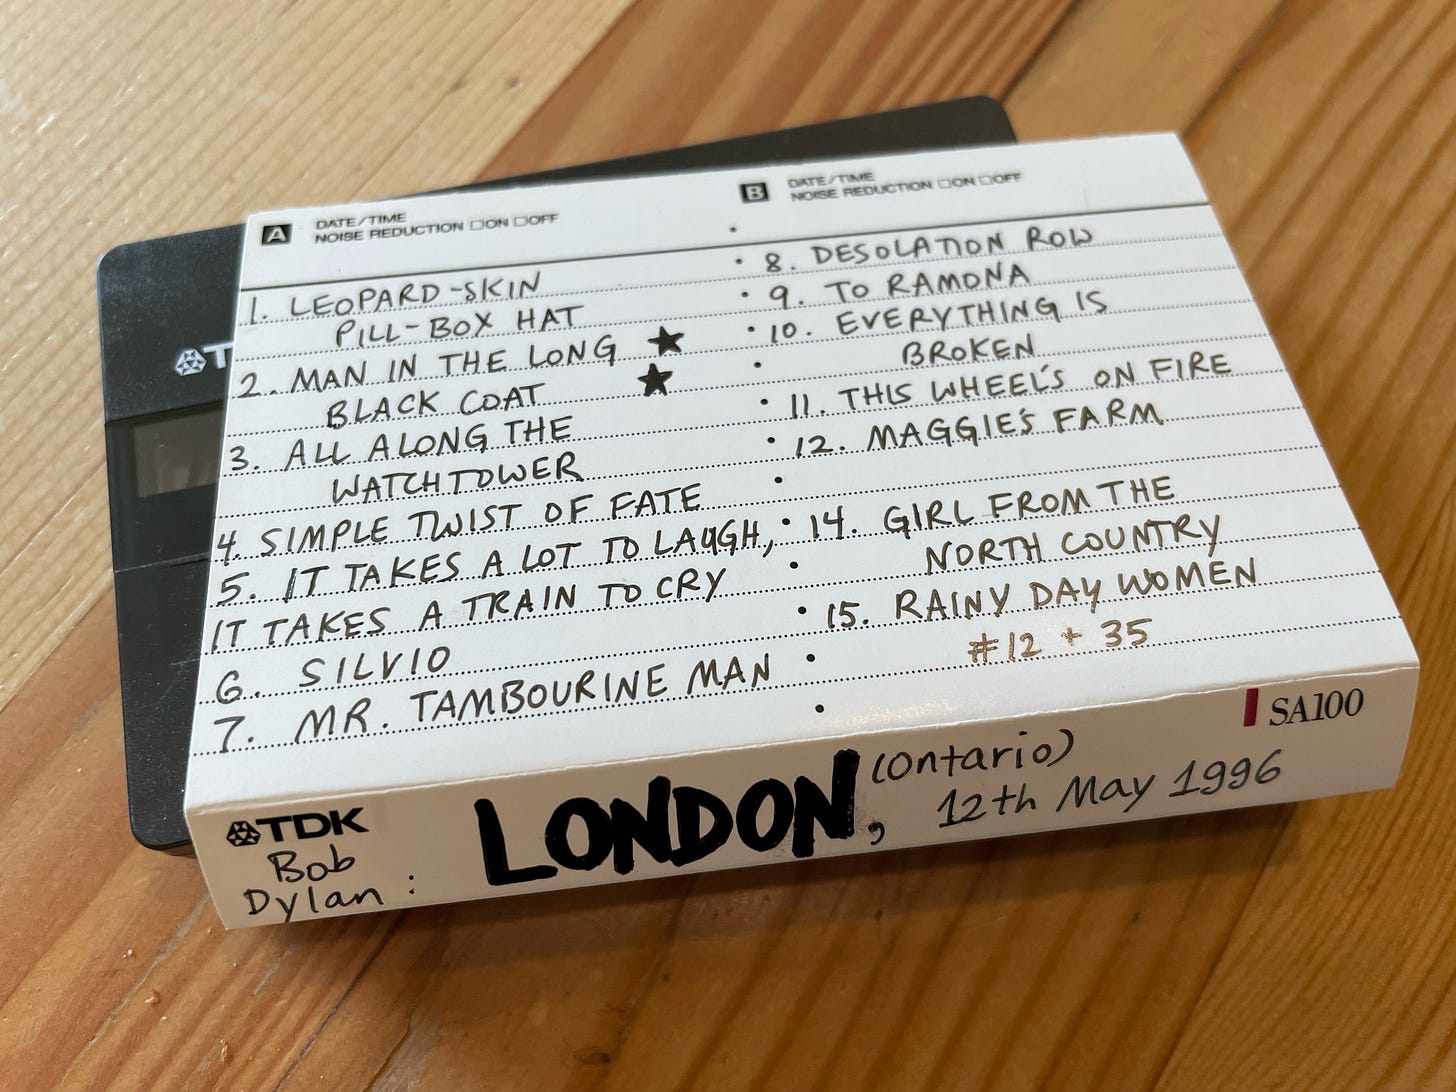 A DATE/TIME
NOISE REDUCTION □ON □OFF
1. LEOPARD-SKIN
PILL-BOX HAT
2. MAN IN THE LONG ★
BLACK COAT ★
3. ALL ALONG THE
WATCHTOWER
4. SIMPLE TWIST OF FATE
5. IT TAKES A LOT TO LAUGH,
IT TAKES A TRAIN TO CRY
6. SILVIO
7. MR. TAMBOURINE MAN
B DATE/TIME
NOISE REDUCTION □ON □OFF
8. DESOLATION ROW
9. TO RAMONA
10. EVERYTHING IS
BROKEN
11. THIS WHEEL'S ON FIRE
12. MAGGIE'S FARM
14. GIRL FROM THE
NORTH COUNTRY
15. RAINY DAY WOMEN
#12 + 35
SA100
TDK
Bob
Dylan:
LONDON,
(Ontario)
12th May 1996